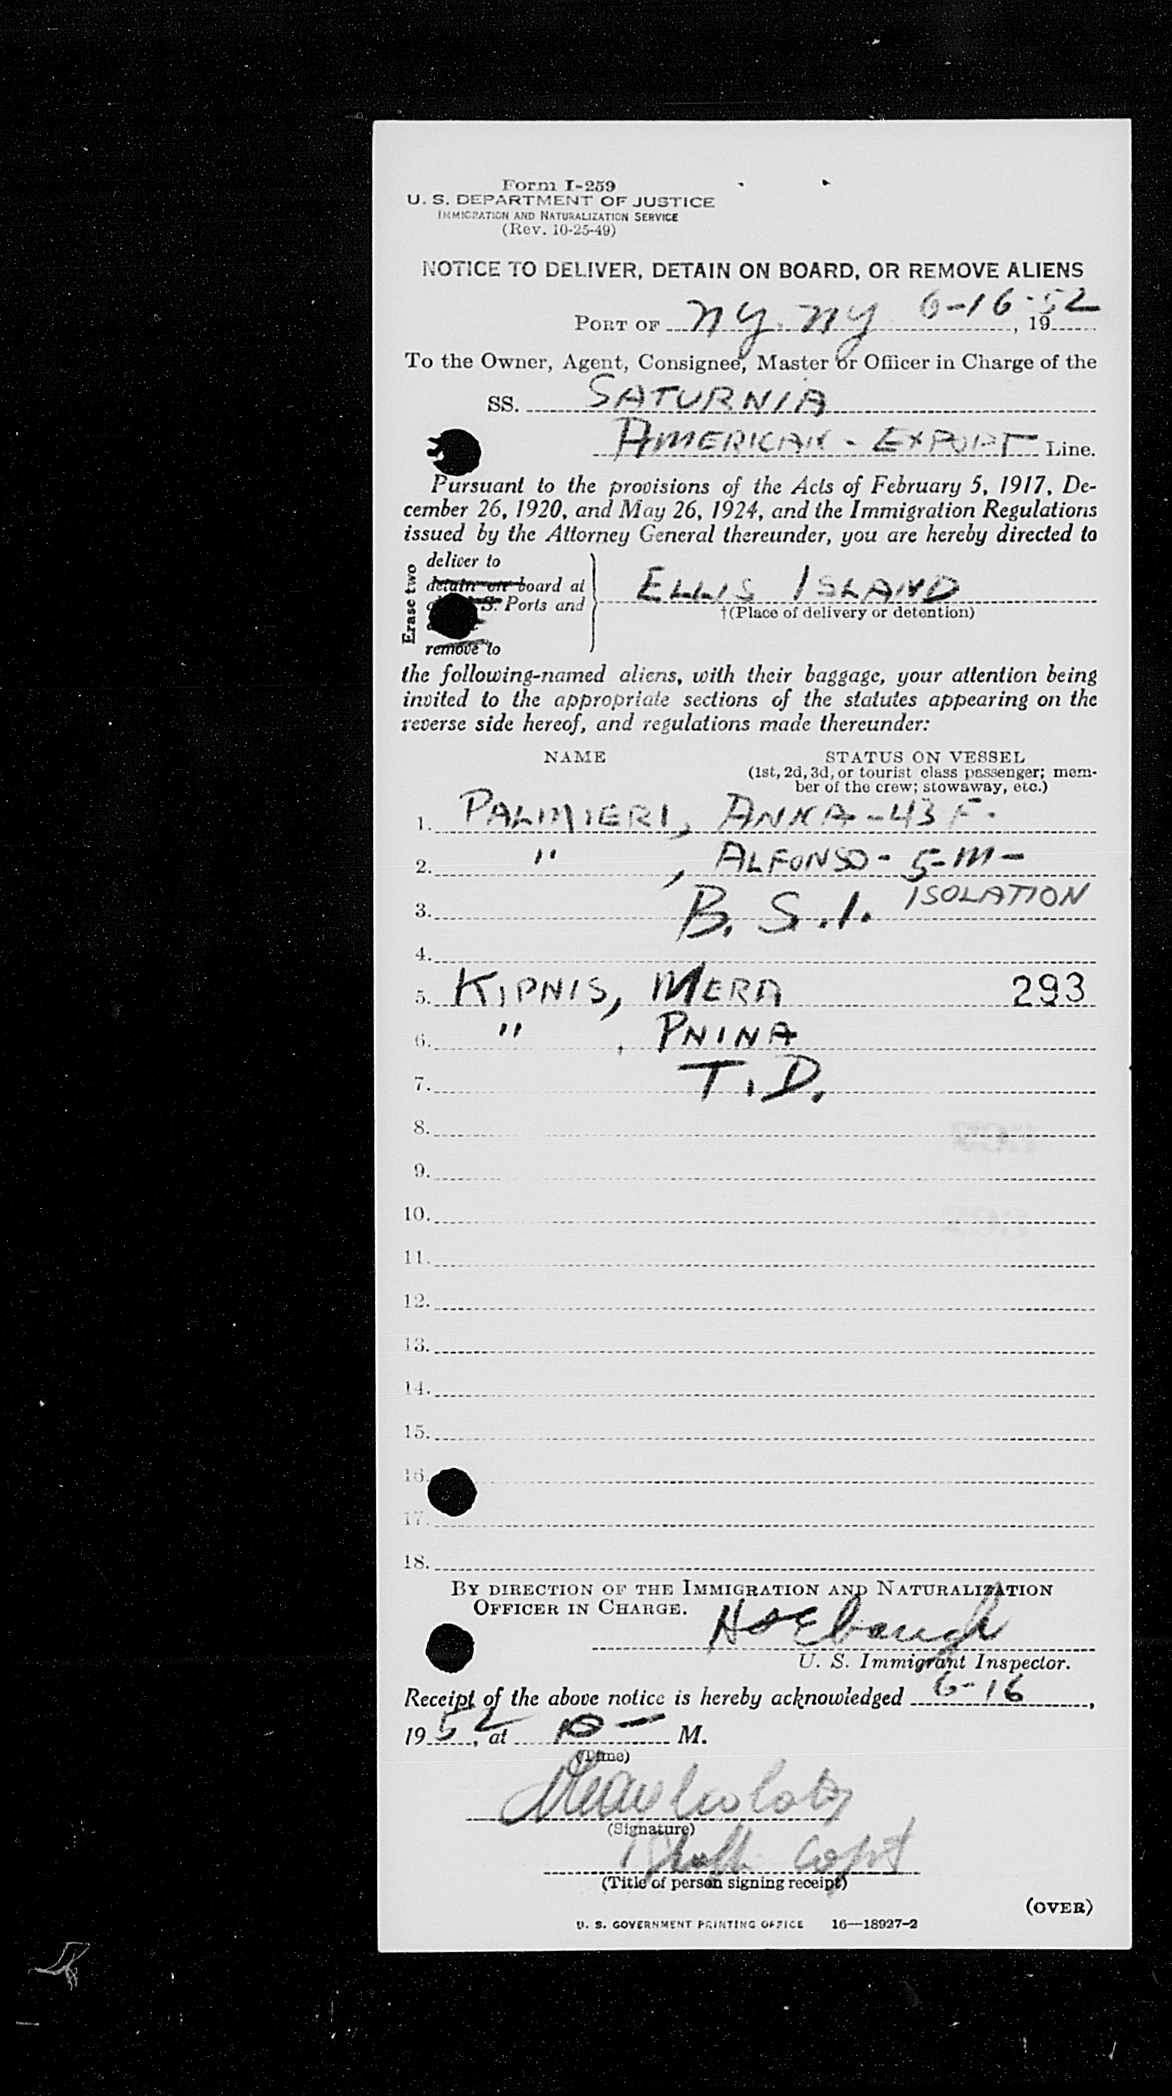 Form I-259
U. S. DEPARTMENT OF JUSTICE
IMMIGRATION AND NATURALIZATION SERVICE
(Rev. 10-25-49)
NOTICE TO DELIVER, DETAIN ON BOARD, OR REMOVE ALIENS
PORT OF NY. NY 6-16-52, 19
To the Owner, Agent, Consignee, Master or Officer in Charge of the
SS. SATURNIA
AMERICAN - EXPORT Line.
Pursuant to the provisions of the Acts of February 5, 1917, De-
cember 26, 1920, and May 26, 1924, and the Immigration Regulations
issued by the Attorney General thereunder, you are hereby directed to
Erase two
deliver to
detain on board at
S. Ports and
remove to
ELLIS ISLAND
†(Place of delivery or detention)
the following-named aliens, with their baggage, your attention being
invited to the appropriate sections of the statutes appearing on the
reverse side hereof, and regulations made thereunder:
NAME STATUS ON VESSEL
(1st, 2d, 3d, or tourist class passenger; mem-
ber of the crew; stowaway, etc.)
1. PALMIERI, ANNA - 43 F.
2. " , ALFONSO - 5-M-
3. B. S. I. ISOLATION
4.
5. KIPNIS, MERA 293
6. " , PNINA
7. T. D.
8.
9.
10.
11.
12.
13.
14.
15.
16.
17.
18.
BY DIRECTION OF THE IMMIGRATION AND NATURALIZATION
OFFICER IN CHARGE.
U. S. Immigrant Inspector.
Receipt of the above notice is hereby acknowledged 6-16,
1952, at 10 — M.
(Time)
(Signature)
(Title of person signing receipt)
(OVER)
U. S. GOVERNMENT PRINTING OFFICE 16—18927-2